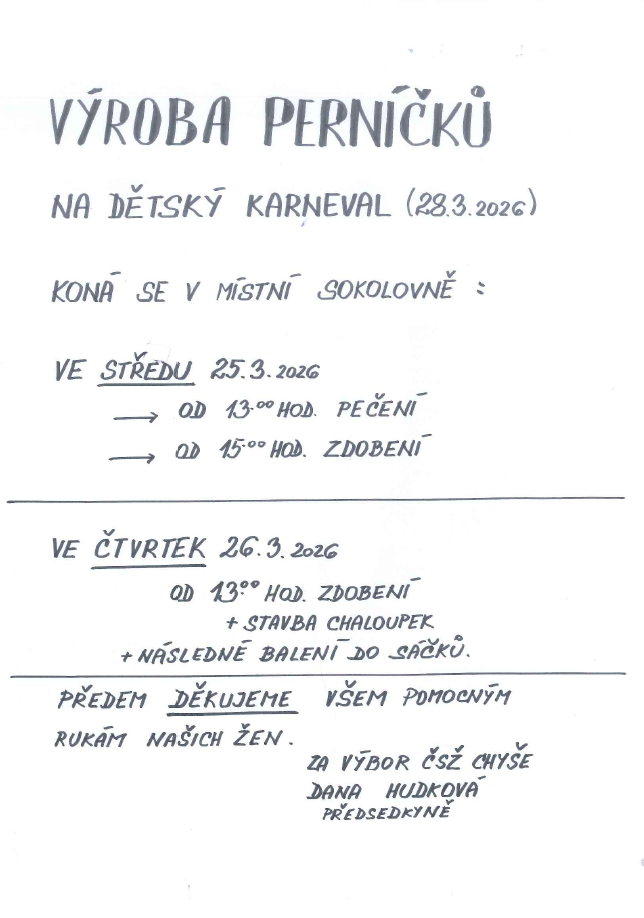 VÝROBA PERNÍČKŮ
NA DĚTSKÝ KARNEVAL (28.3.2026)
KONÁ SE V MÍSTNÍ SOKOLOVNĚ :
VE STŘEDU 25.3.2026
→ OD 13.00 HOD. PEČENÍ
→ OD 15.00 HOD. ZDOBENÍ
VE ČTVRTEK 26.3.2026
OD 13.00 HOD. ZDOBENÍ
+ STAVBA CHALOUPEK
+ NÁSLEDNÉ BALENÍ DO SÁČKŮ.
PŘEDEM DĚKUJEME VŠEM POMOCNÝM
RUKÁM NAŠICH ŽEN.
ZA VÝBOR ČSŽ CHYŠE
DANA HUDKOVÁ
PŘEDSEDKYNĚ